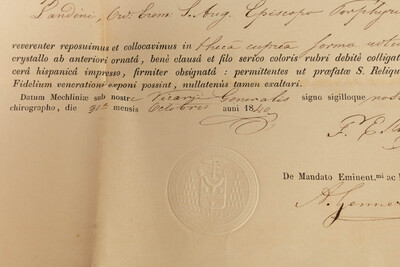 Pandini, Ord. Erem. S. Aug. Episcopo Porphyri
reverenter reposuimus et collocavimus in theca cuprea forma
crystallo ab anteriori ornatâ, benè clausâ et filo serico coloris rubri debitè colligat
cerâ hispanicâ impresso, firmiter obsignatâ : permittentes ut præfatæ S. Reliqu
Fidelium venerationi exponi possint, nullatenùs tamen exaltari.
Datum Mechliniæ sub nostr Vicarii Generalis signo sigilloque
chirographo, die 31â mensis Octobris anni 18
De Mandato Eminent.mi ac